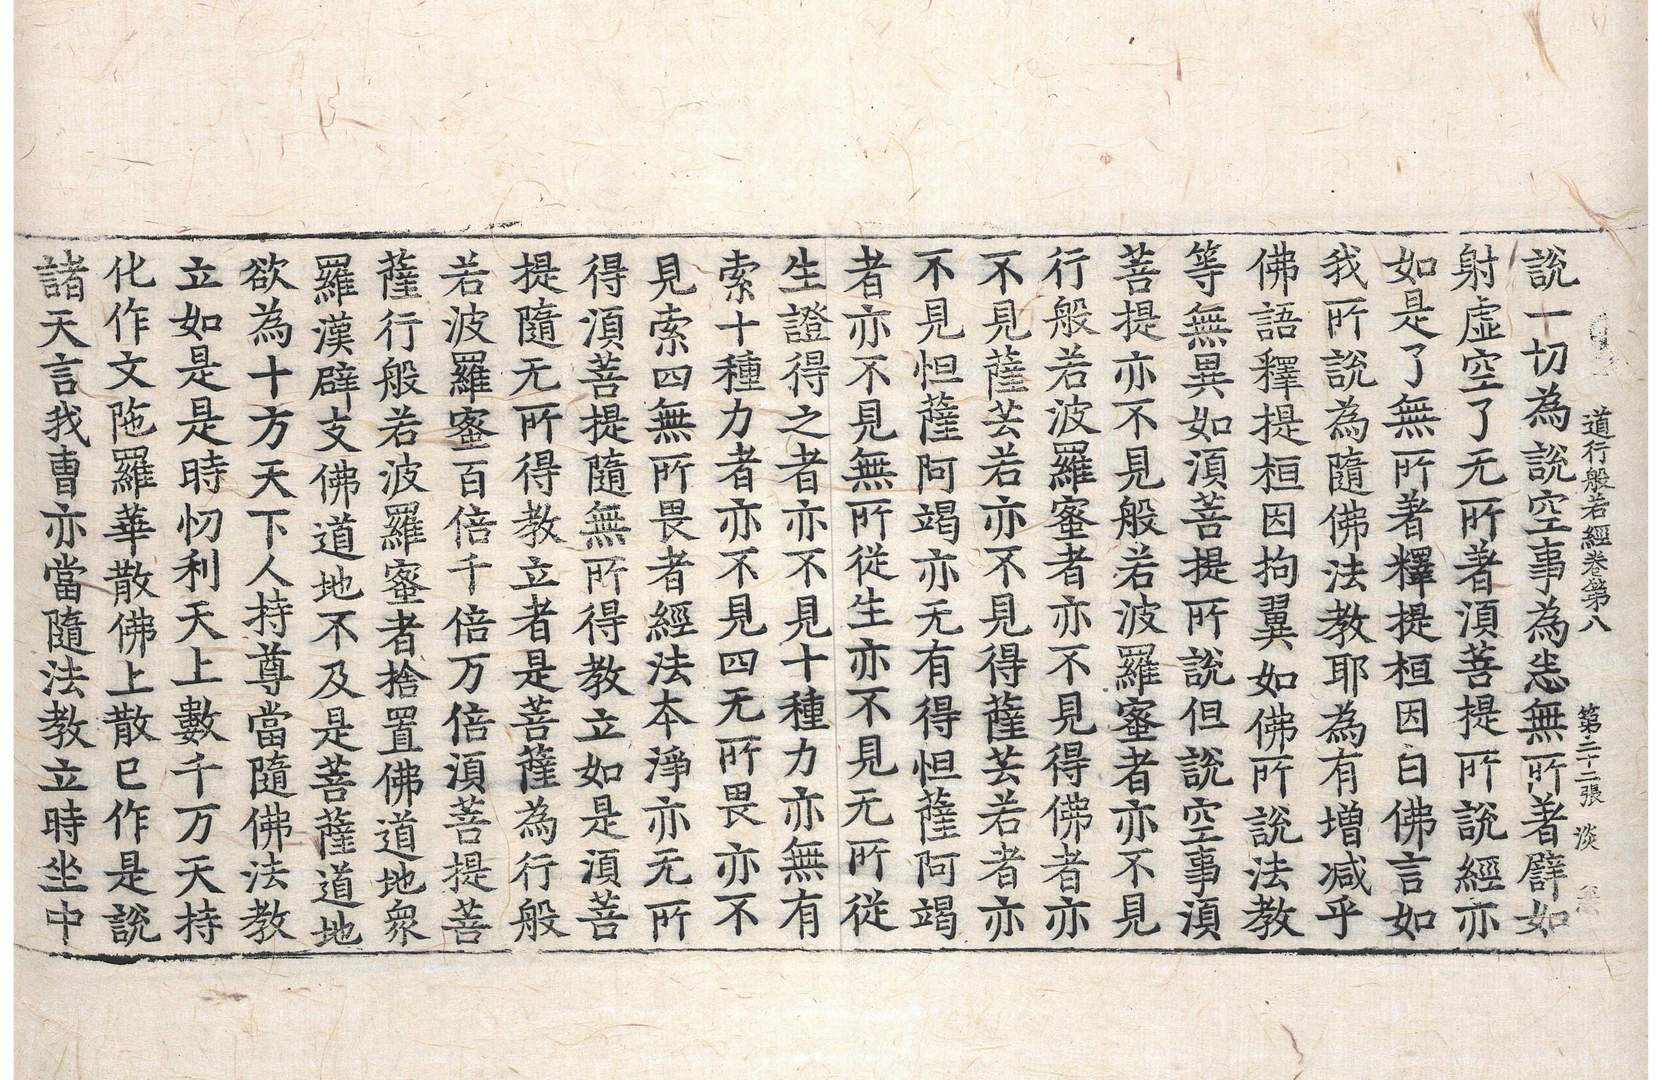 道行般若經卷第八 第二十二張 淡
說一切為說空事為悉無所著譬如
射虛空了无所著湏菩提所說經亦
如是了無所著釋提桓因白佛言如
我所說為隨佛法教耶為有增减乎
佛語釋提桓因拘翼如佛所說法教
等無異如湏菩提所說但說空事湏
菩提亦不見般若波羅蜜者亦不見
行般若波羅蜜者亦不見得佛者亦
不見薩芸若亦不見得薩芸若者亦
不見怛薩阿竭亦无有得怛薩阿竭
者亦不見無所從生亦不見无所從
生證得之者亦不見十種力亦無有
索十種力者亦不見四无所畏亦不
見索四無所畏者經法夲淨亦无所
得湏菩提隨無所得教立如是湏菩
提隨无所得教立者是菩薩為行般
若波羅蜜百倍千倍万倍湏菩提菩
薩行般若波羅蜜者捨置佛道地衆
羅漢辟支佛道地不及是菩薩道地
欲為十方天下人持尊當隨佛法教
立如是是時忉利天上數千万天持
化作文陁羅華散佛上散已作是說
諸天言我曺亦當隨法教立時坐中